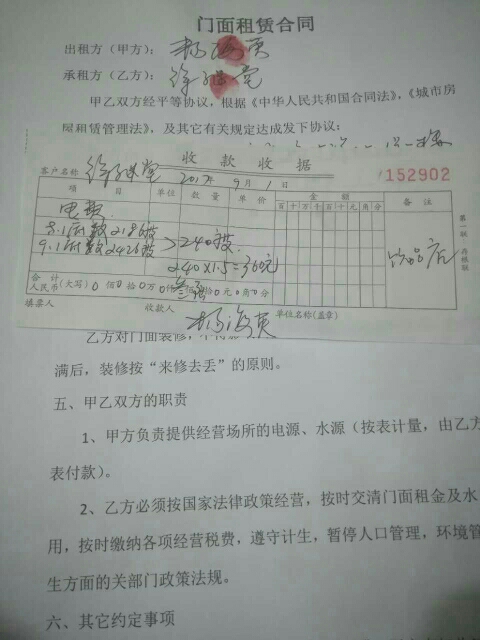 门面租赁合同
出租方（甲方）：杨海英
承租方（乙方）：
甲乙双方经平等协议，根据《中华人民共和国合同法》，《城市房
屋租赁管理法》，及其它有关规定达成发下协议：
收款收据
客户名称 2017年9月1日 152902
项目 单位 数量 单价 金额 备注
百十万千百十元角分
电费
8.1付数2186度
9.1付数2426度 >240度
240×1.5=360元
饮品店
第一联 存根联
合计
人民币(大写) 0佰0拾0万0仟叁佰 拾0元0角0分
填票人 收款人 杨海英 单位名称(盖章)
乙方对门面装修，
满后，装修按“来修去丢”的原则。
五、甲乙双方的职责
1、甲方负责提供经营场所的电源、水源（按表计量，由乙方
表付款）。
2、乙方必须按国家法律政策经营，按时交清门面租金及水
用，按时缴纳各项经营税费，遵守计生，暂停人口管理，环境管
生方面的关部门政策法规。
六、其它约定事项